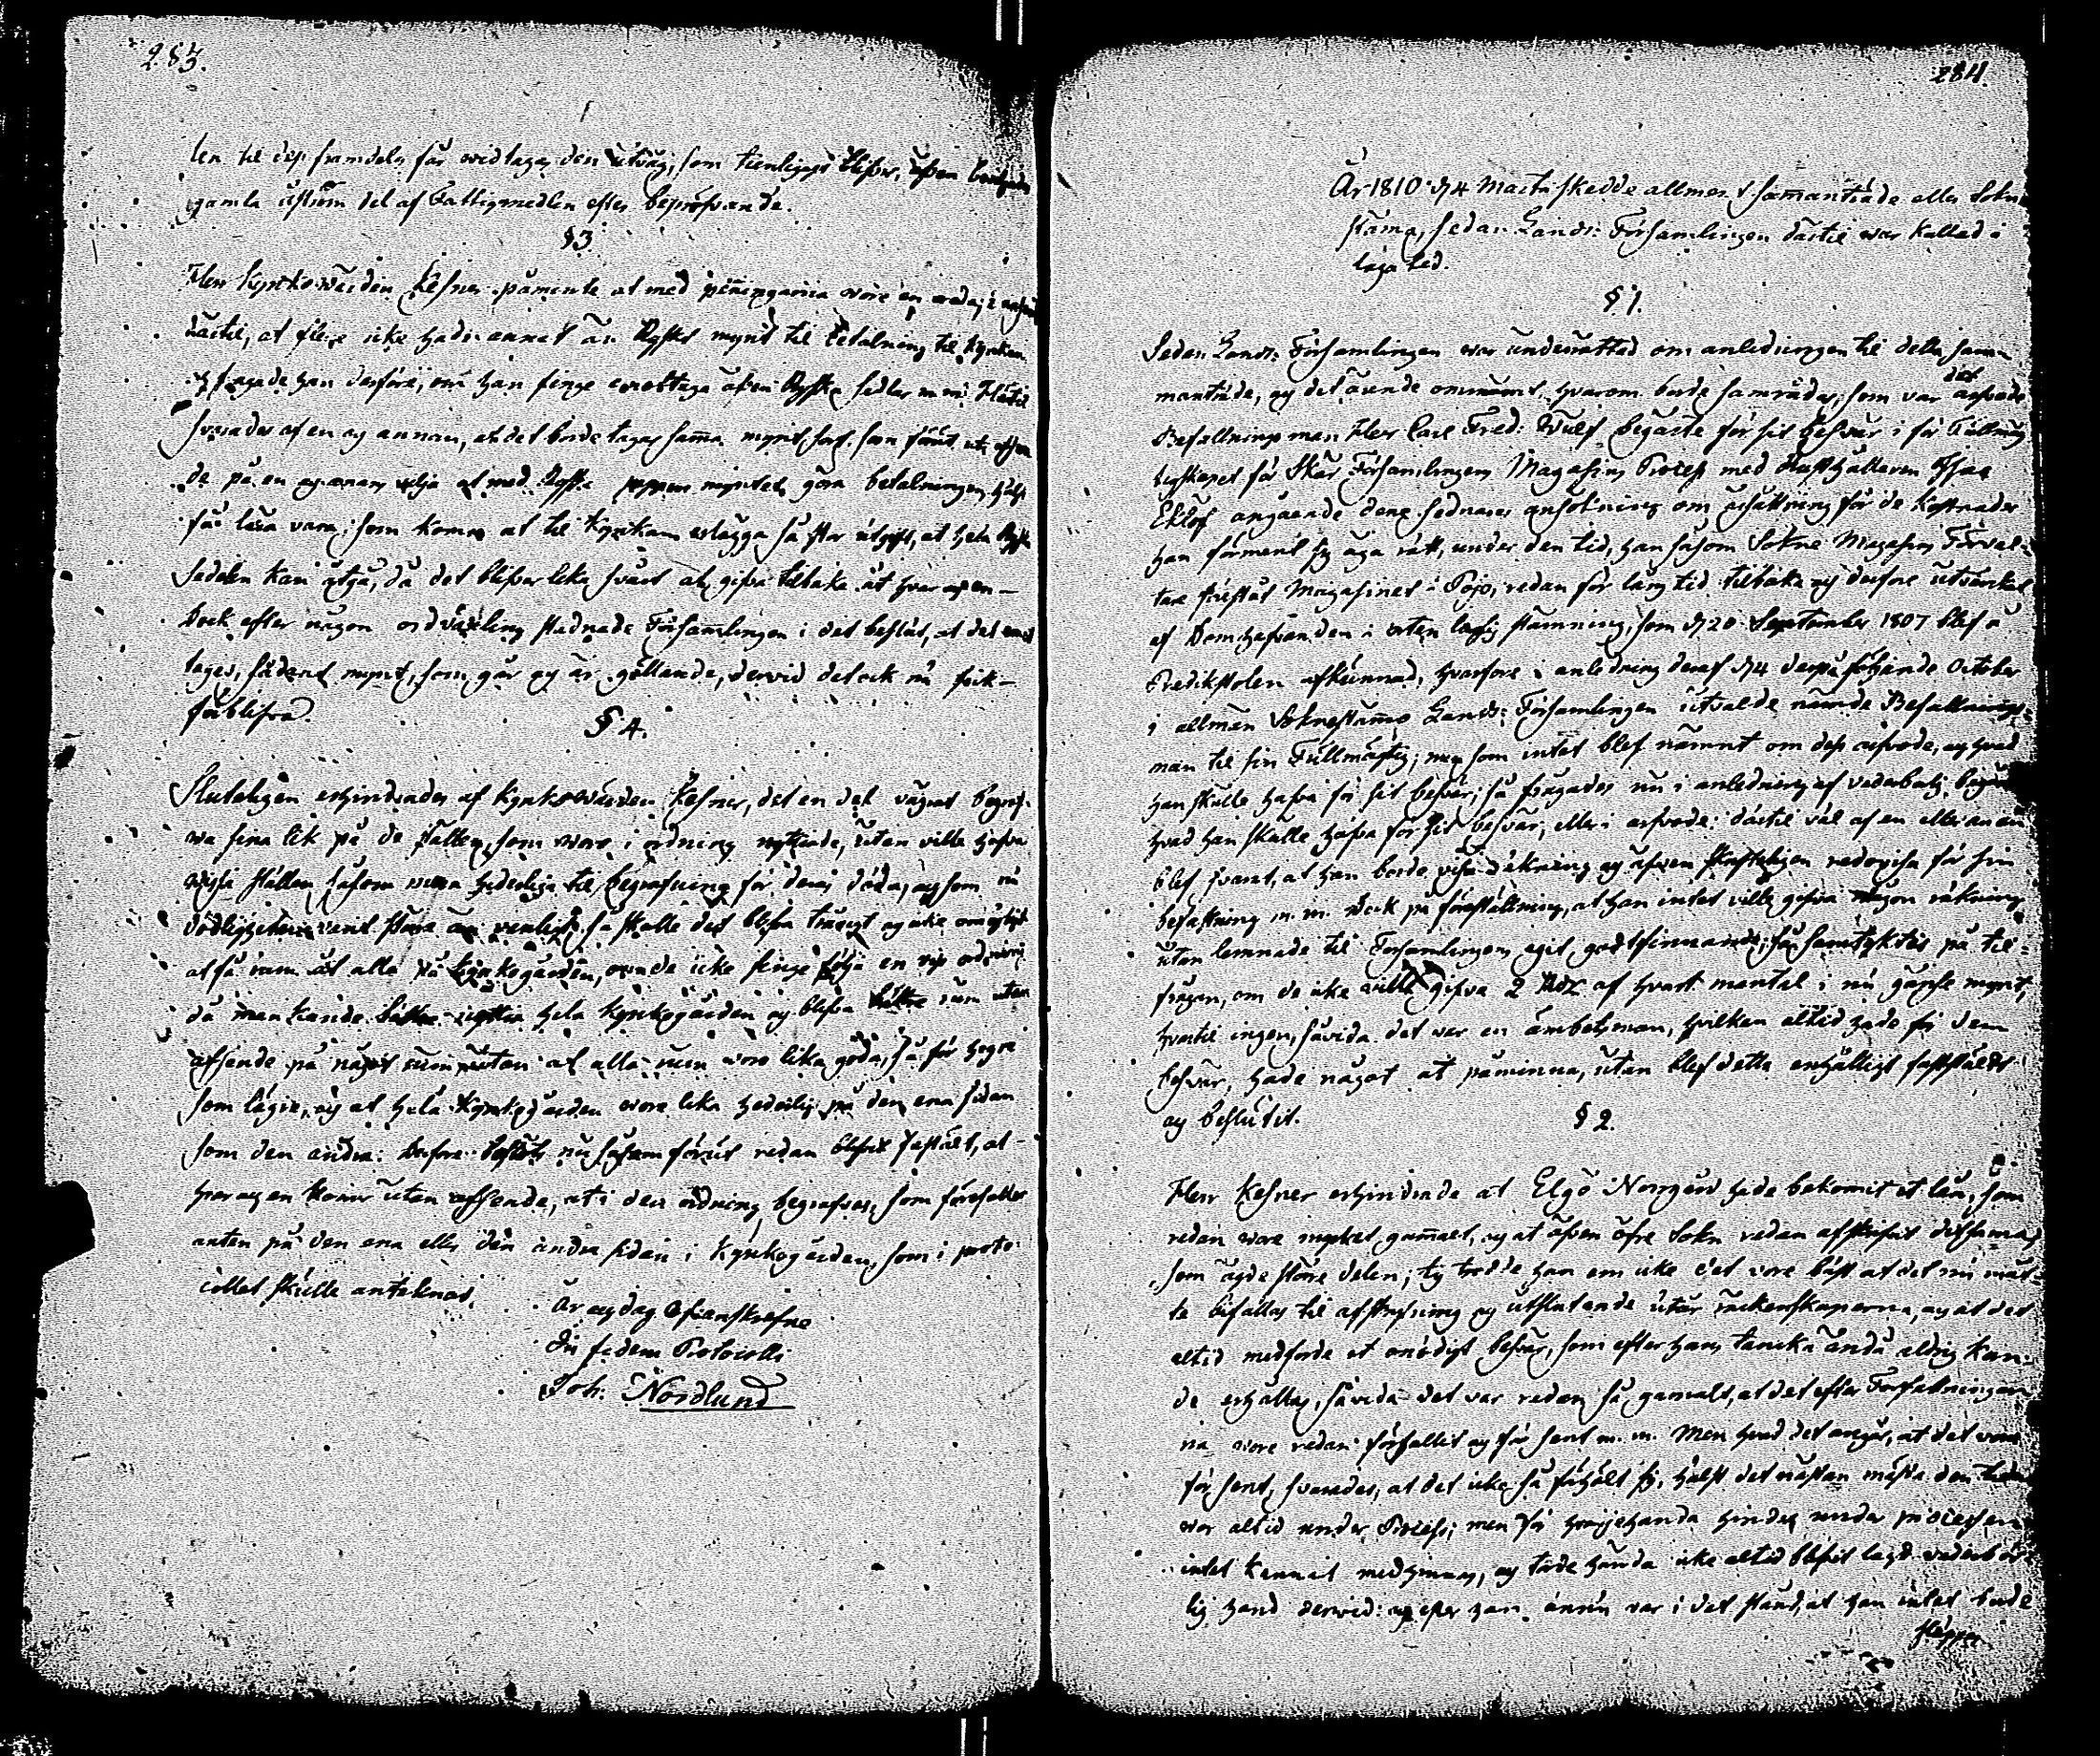 283.
len til dess framdeles får vidtagas den utväg, som tienligast blifver, äfven
gamla utström del af Fattigmedlen efter bepröfvande.
§ 3
Herr Kyrkowärden Kesner påminte at med peningarna wore en oreda, i anseende
därtil, at flere icke hade annat än Ryskt mynt til betalning til Kyrkan
og frågade han derföre, om han finge emottaga äfven Ryska sedlar m m: Härtil
svarades af en og annan, at det borde tagas sama mynt, som förut
de på en og annan vilja at med Ryska myntet göra betalningen, hälst
få lära vara, som komma at til Kyrkan erlägga så stor utgift, at hela Ryska
Sedelen kan åtgå, då det blifver lika svårt at gifva tilbaka åt hvar og en —
Dock efter någon ordväxling stadnade Församlingen i det beslut, at det
tages, sådant mynt, som går og är gällande, dervid det ock nu fick —
förblifva.
§ 4.
Sluteligen erhindrades af Kyrkowärden Kesner, det en del vägrat begraf-
wa sina lik på de ställen, som wore i ordning nyttiade, utan ville hafva
wissa ställen, såsom mera hederliga til begrafning för deras döda, og som nu
dödligheten varit större än vanligt, så skulle det blifva trångt og icke möjligt
at få rum åt alla på Kyrkogården, om de icke finge följa en viss ordning
då man kunde hela Kyrkogården og blifva rum utan
afseende på något rum, utan at alla rum woro lika goda, så för högre
som lägre, og at hela Kyrkogården wore lika hederlig på den ena sidan
som den andra: Derföre beslöts nu såsom förut redan blifvit fastält, at
hvar og en komer utan afseende, at i den ordning begrafvas, som förefaller
anten på den ena eller den andra sidan i Kyrkogården, som i proto-
collet skulle anteknas.
År og dag ofvanskrefne
In fidem Protocolli
Joh: Nordlund
284.
År 1810 d 4 Martii skedde allment samanträde eller Sokne
stäma, sedan Lands: Församlingen därtil war kallad i
laga tid.
§ 1.
Sedan Lands: Församlingen war underrättad om anledningen til detta sam-
manträde, og det ärende omnämnt, hvarom borde samrådas, som var det arfvode
Befallningsman Herr Carl Fred: Wulf begärte för sit besvär i för Fullmäg
tigskapet för Skär Församlingens Magasins Process med Rusthållaren Isac
Eklöf angående dens sednares ansökning om ersättning för de kostnader
han förment sig äga rätt, under den tid, han såsom Sokne Magasins Förval-
tare förestått Magasinet i Pojo, redan för lång tid tilbaka og derföre utvärkat
af Domhafvanden i orten laglig stämning, som d 20 September 1807 blef å
Predikstolen afkunnad, hvarföre i anledning deraf d 4 derpå följande October
i allmän Soknestämma Lands: Församlingen utvalde nämde Befallnings-
man til sin Fullmägtig; men som intet blef nämnt om dess arfvode, og hvad
han skulle hafva för sit besvär; så frågades nu i anledning af vederbörl.
hvad han skulle hafva för sit besvär, eller i arfvode: därtil väl af en eller annan
blef svarat, at han borde visa räkning og äfven skrifteligen redovisa för sin
befattning m. m. Dock på föreställning, at han intet ville gifva någon räkning
utan lemnade til Församlingens eget godtfinnande, så samtyktes på til-
frågan, om de icke ville gifva 2 Rdr af hvart mantal i nu gångse mynt,
hvartil ingen, såvida det var en ämbetsman, hvilken altid hade för dem
besvär, hade något at påminna, utan blef detta enhälligt fastställdt
og beslutit.
§ 2.
Herr Kesner erhindrade at Elgö Norrgård hade bekomit et lån, som
redan wore mycket gammalt, og at äfven öfre Sokn redan afskrifvit detsama,
som ägde större delen; ty trodde han om icke det vore bäst at det nu måt-
te befallas til afskrifning og utslutande utur räckenskaperna, og at det
altid medförde et onödigt besvär, som efter hans tancka ändå aldrig kun-
de erhållas, såvida det var redan så gamalt, at det efter Författningar-
na wore redan förfallit og för sent m. m. Men hvad det angår, at det vore
för sent, svarades, at det icke så förhölt sig, hälst det nästan mästa den tiden
war altid under Process; men för hvarjehanda hinder under processen
intet kunnat medhinnas, og torde hända icke altid blifvit lagd vederbör-
lig hand dervid: og efter han ännu var i det stånd, at han intet borde
släppa